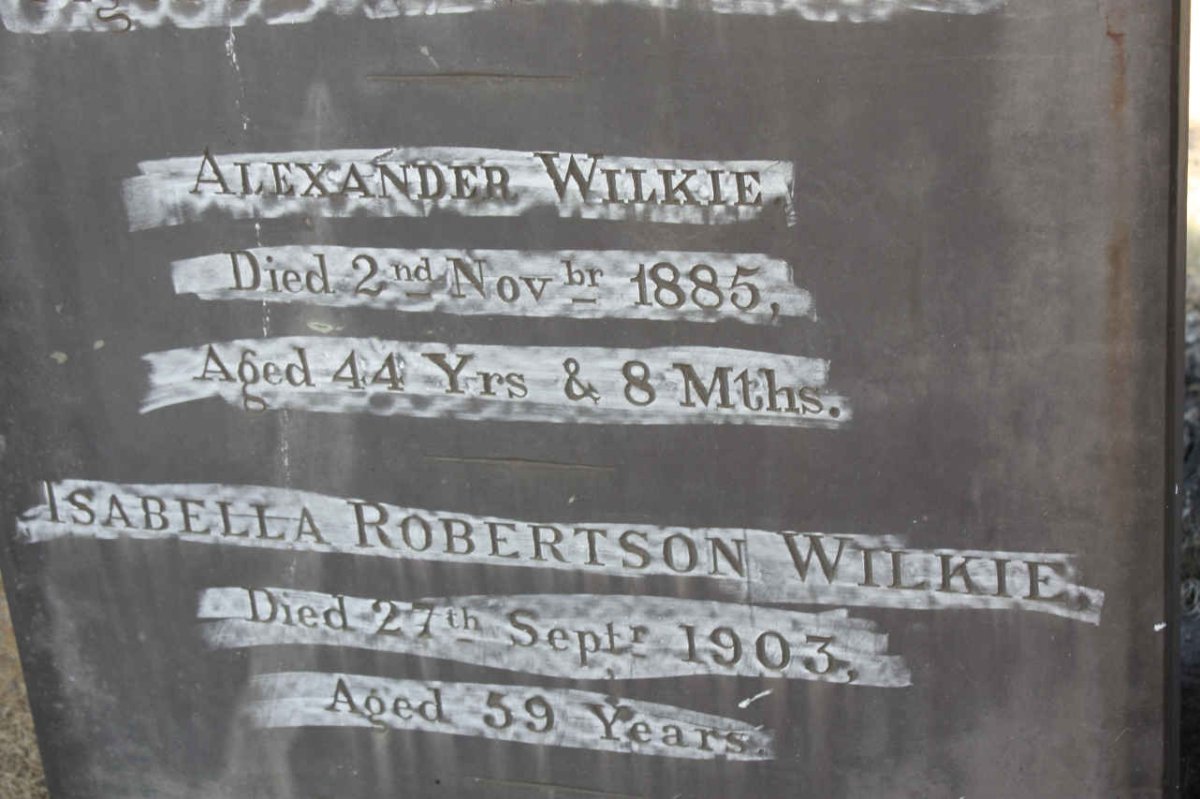 ALEXANDER WILKIE,
Died 2nd Novbr 1885,
Aged 44 Yrs & 8 Mths.
ISABELLA ROBERTSON WILKIE,
Died 27th Septr 1903,
Aged 59 Years.